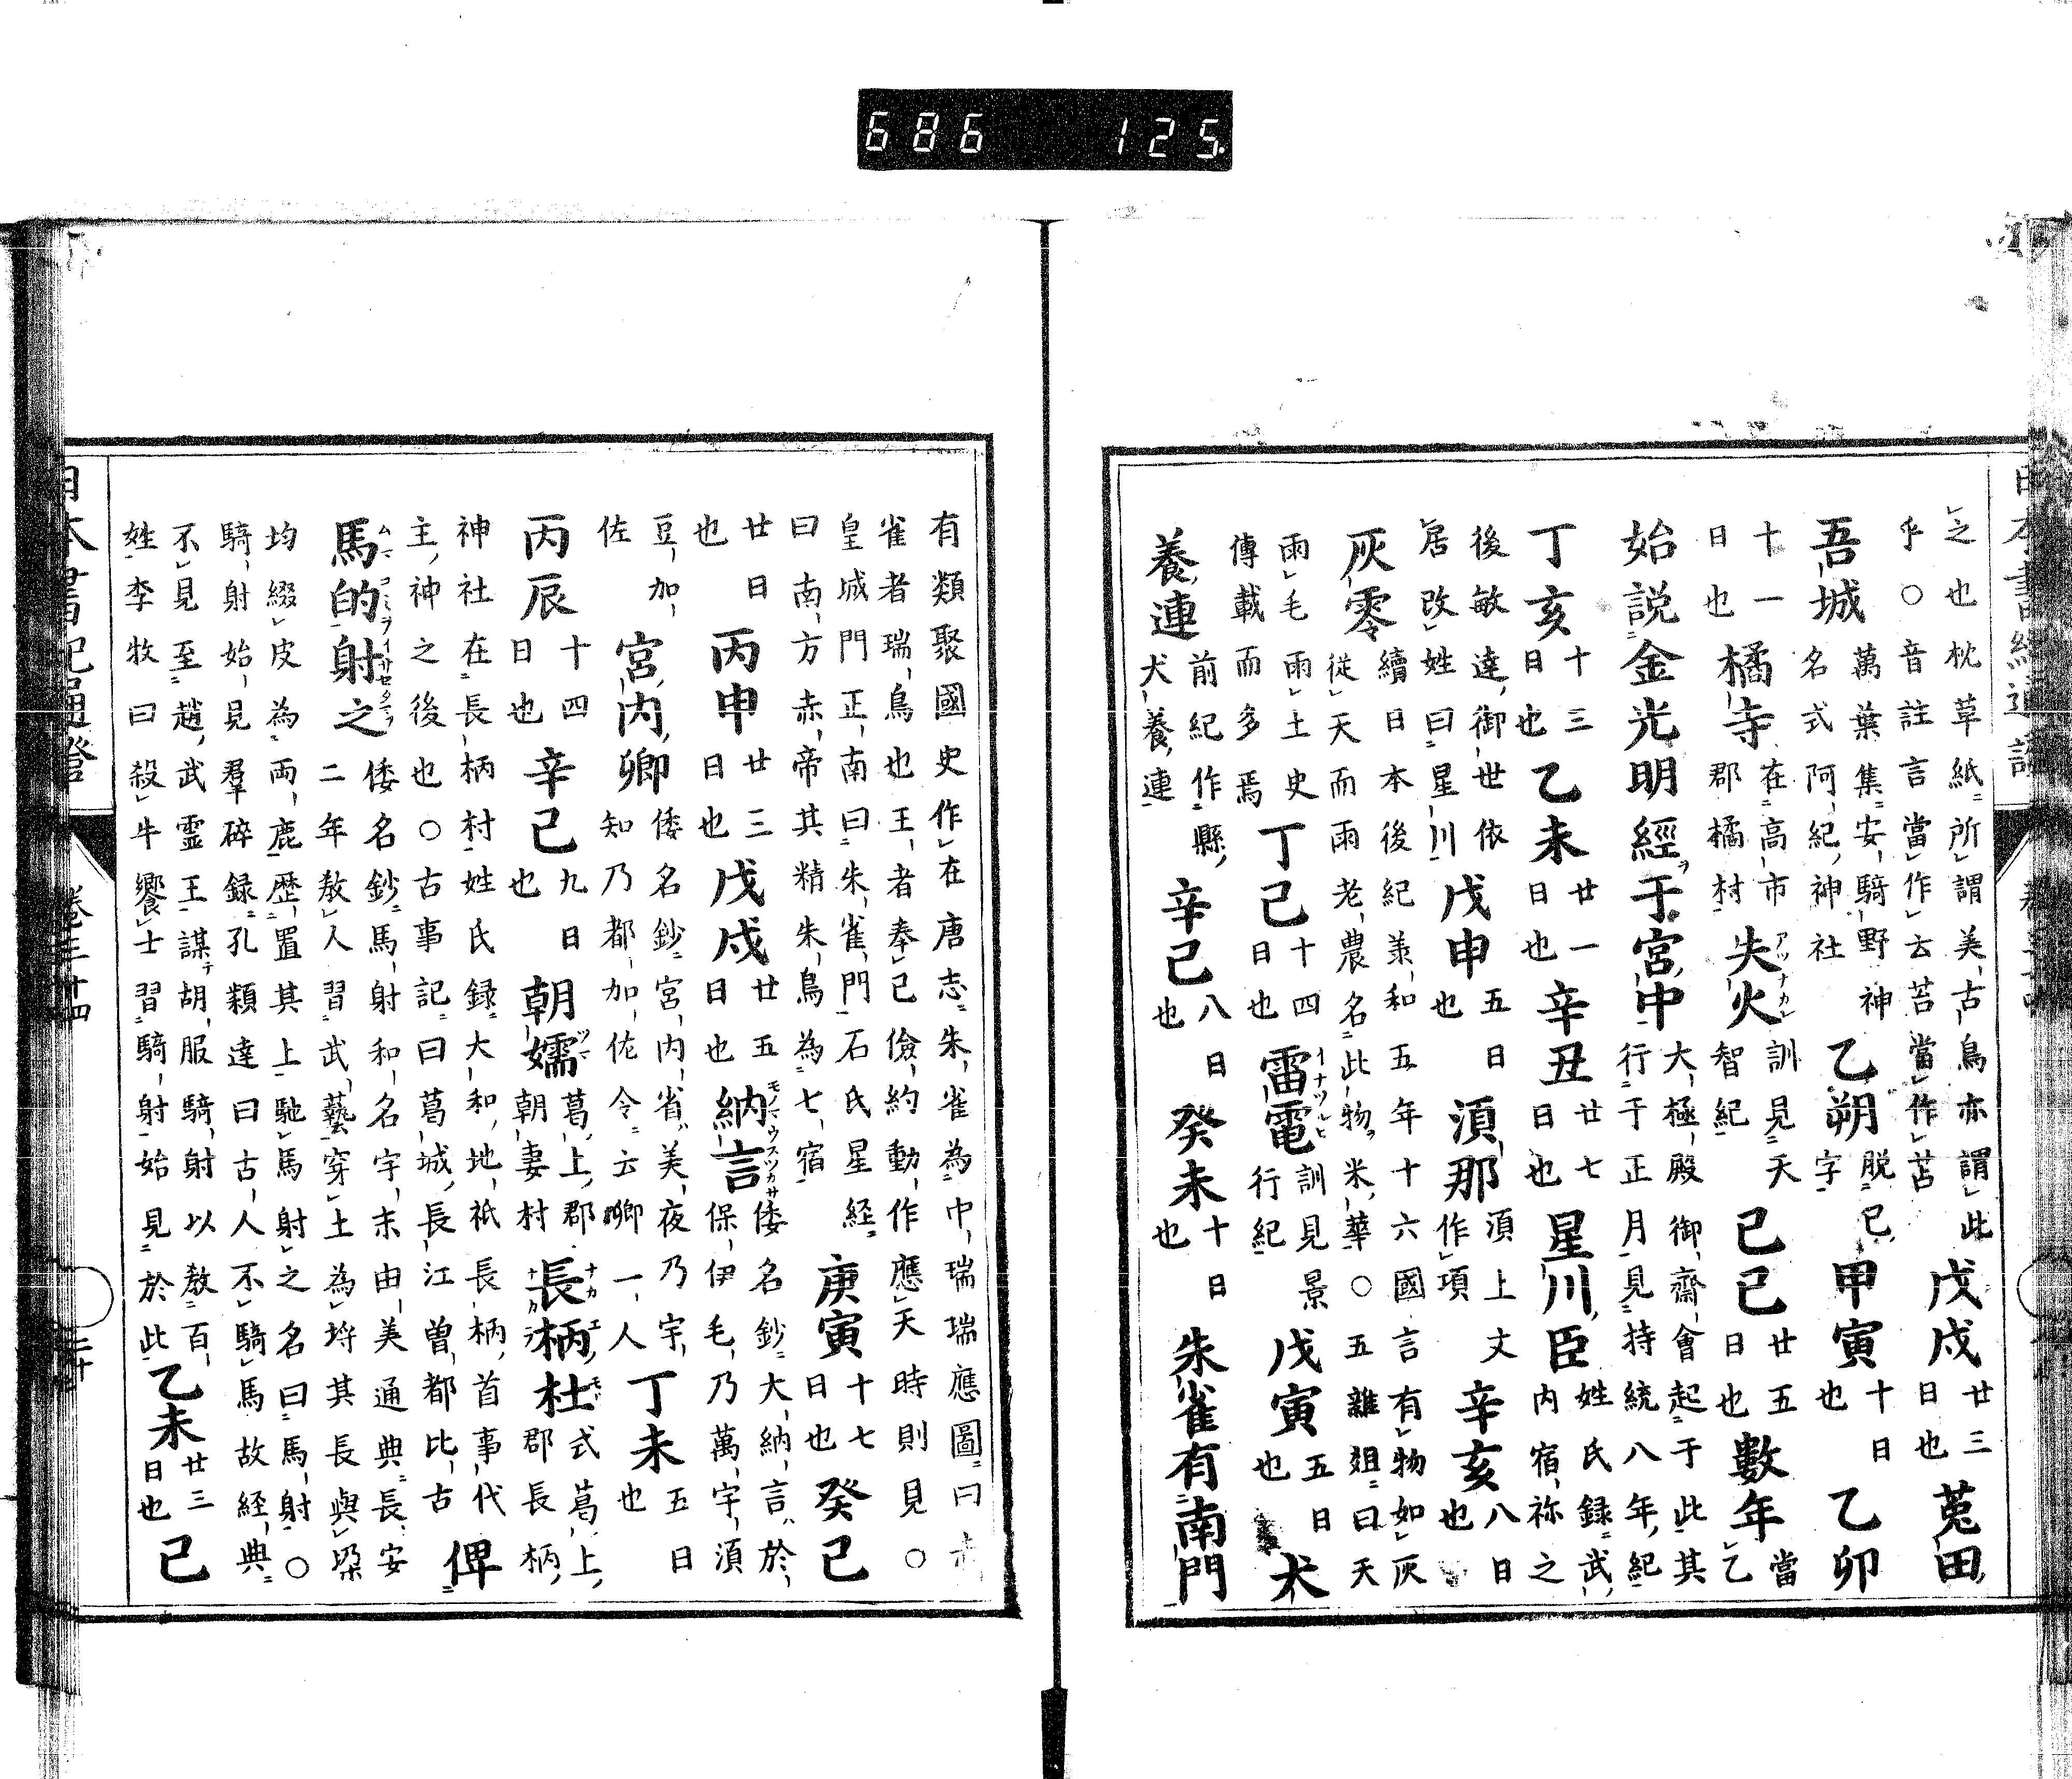 686 125
之也枕草紙所謂美古鳥亦謂此
乎○音註言當作云苫當作苫
戊戌
廿三
日也
菟田
吾城
萬葉集安騎野神
名式阿紀神社
乙朔
脱巳
字
甲寅
十日
也
乙卯
十一
日也
橘寺
在高市
郡橘村
失火
アツナカレ
訓見天
智紀
己巳
廿五
日也
數年
當
乙
始說金光明經于宮中
大極殿御齋會起于此其
行于正月見持統八年紀
丁亥
十三
日也
乙未
廿一
日也
辛丑
廿七
日也
星川臣
姓氏録武
内宿祢之
後敏達御世依
居改姓曰星川
戊申
五日
也
須那
須上文
作項
辛亥
八日
也
灰零
續日本後紀義和五年十六國言有物如灰
從天而雨老農名此物米華○五雜俎曰天
雨毛雨土史
傳載而多焉
丁己
十四
日也
雷電
イナツルヒ
訓見景
行紀
戊寅
五日
也
犬
養連
前紀作縣
犬養連
辛己
八日
也
癸未
十日
也
朱雀有南門
有類聚國史作在唐志朱雀為中瑞瑞應圖曰赤
雀者瑞鳥也王者奉己儉約動作應天時則見○
皇城門正南曰朱雀門石氏星経
曰南方赤帝其精朱鳥為七宿
庚寅
十七
日也
癸已
廿日
也
丙申
廿三
日也
戊戍
廿五
日也
納言
モノマウスツカサ
倭名鈔大納言於
保伊毛乃萬宇須
豆加
佐
宮内卿
倭名鈔宮内省美夜乃宇
知乃都加佐令云卿一人
丁未
五日
也
丙辰
十四
日也
辛己
九日
也
朝嬬
ツマ
葛上郡
朝妻村
長柄杜
ナカエ
モリ
式葛上
郡長柄
神社在長柄村姓氏録大和地祇長柄首事代
主神之後也○古事記曰葛城長江曽都比古
俾
馬的射之
ムマユミヲイサセタマフ
倭名鈔馬射和名宇末由美通典長安
二年敎人習武藝穿土為埒其長與垜
均綴皮為両鹿歴置其上馳馬射之名曰馬射○
騎射始見羣碎録孔穎達曰古人不騎馬故経典
不見至趙武霊王謀胡服騎射以敎百
姓李牧曰殺牛饗士習騎射始見於此
乙未
廿三
日也
己
日本書紀通證
卷三十四